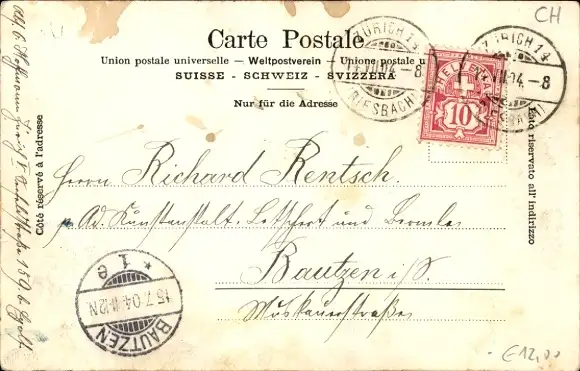 CH
Carte Postale.
Union postale universelle — Weltpostverein — Unione postale u
SUISSE - SCHWEIZ - SVIZZERA
Nur für die Adresse
Côté réservé à l'adresse
Lato riservato all' indirizzo
ZÜRICH 14
VII.04.-8
(RIESBACH)
ZÜRICH 14
VII.04.-8
HELVETIA
10
Herrn Richard Rentsch.
Ad. Kunstanstalt.
und
Bautzen i/S.
Muskauerstraße
BAUTZEN
15.7.04. 11-12N
* 1 e
159
- €12,00